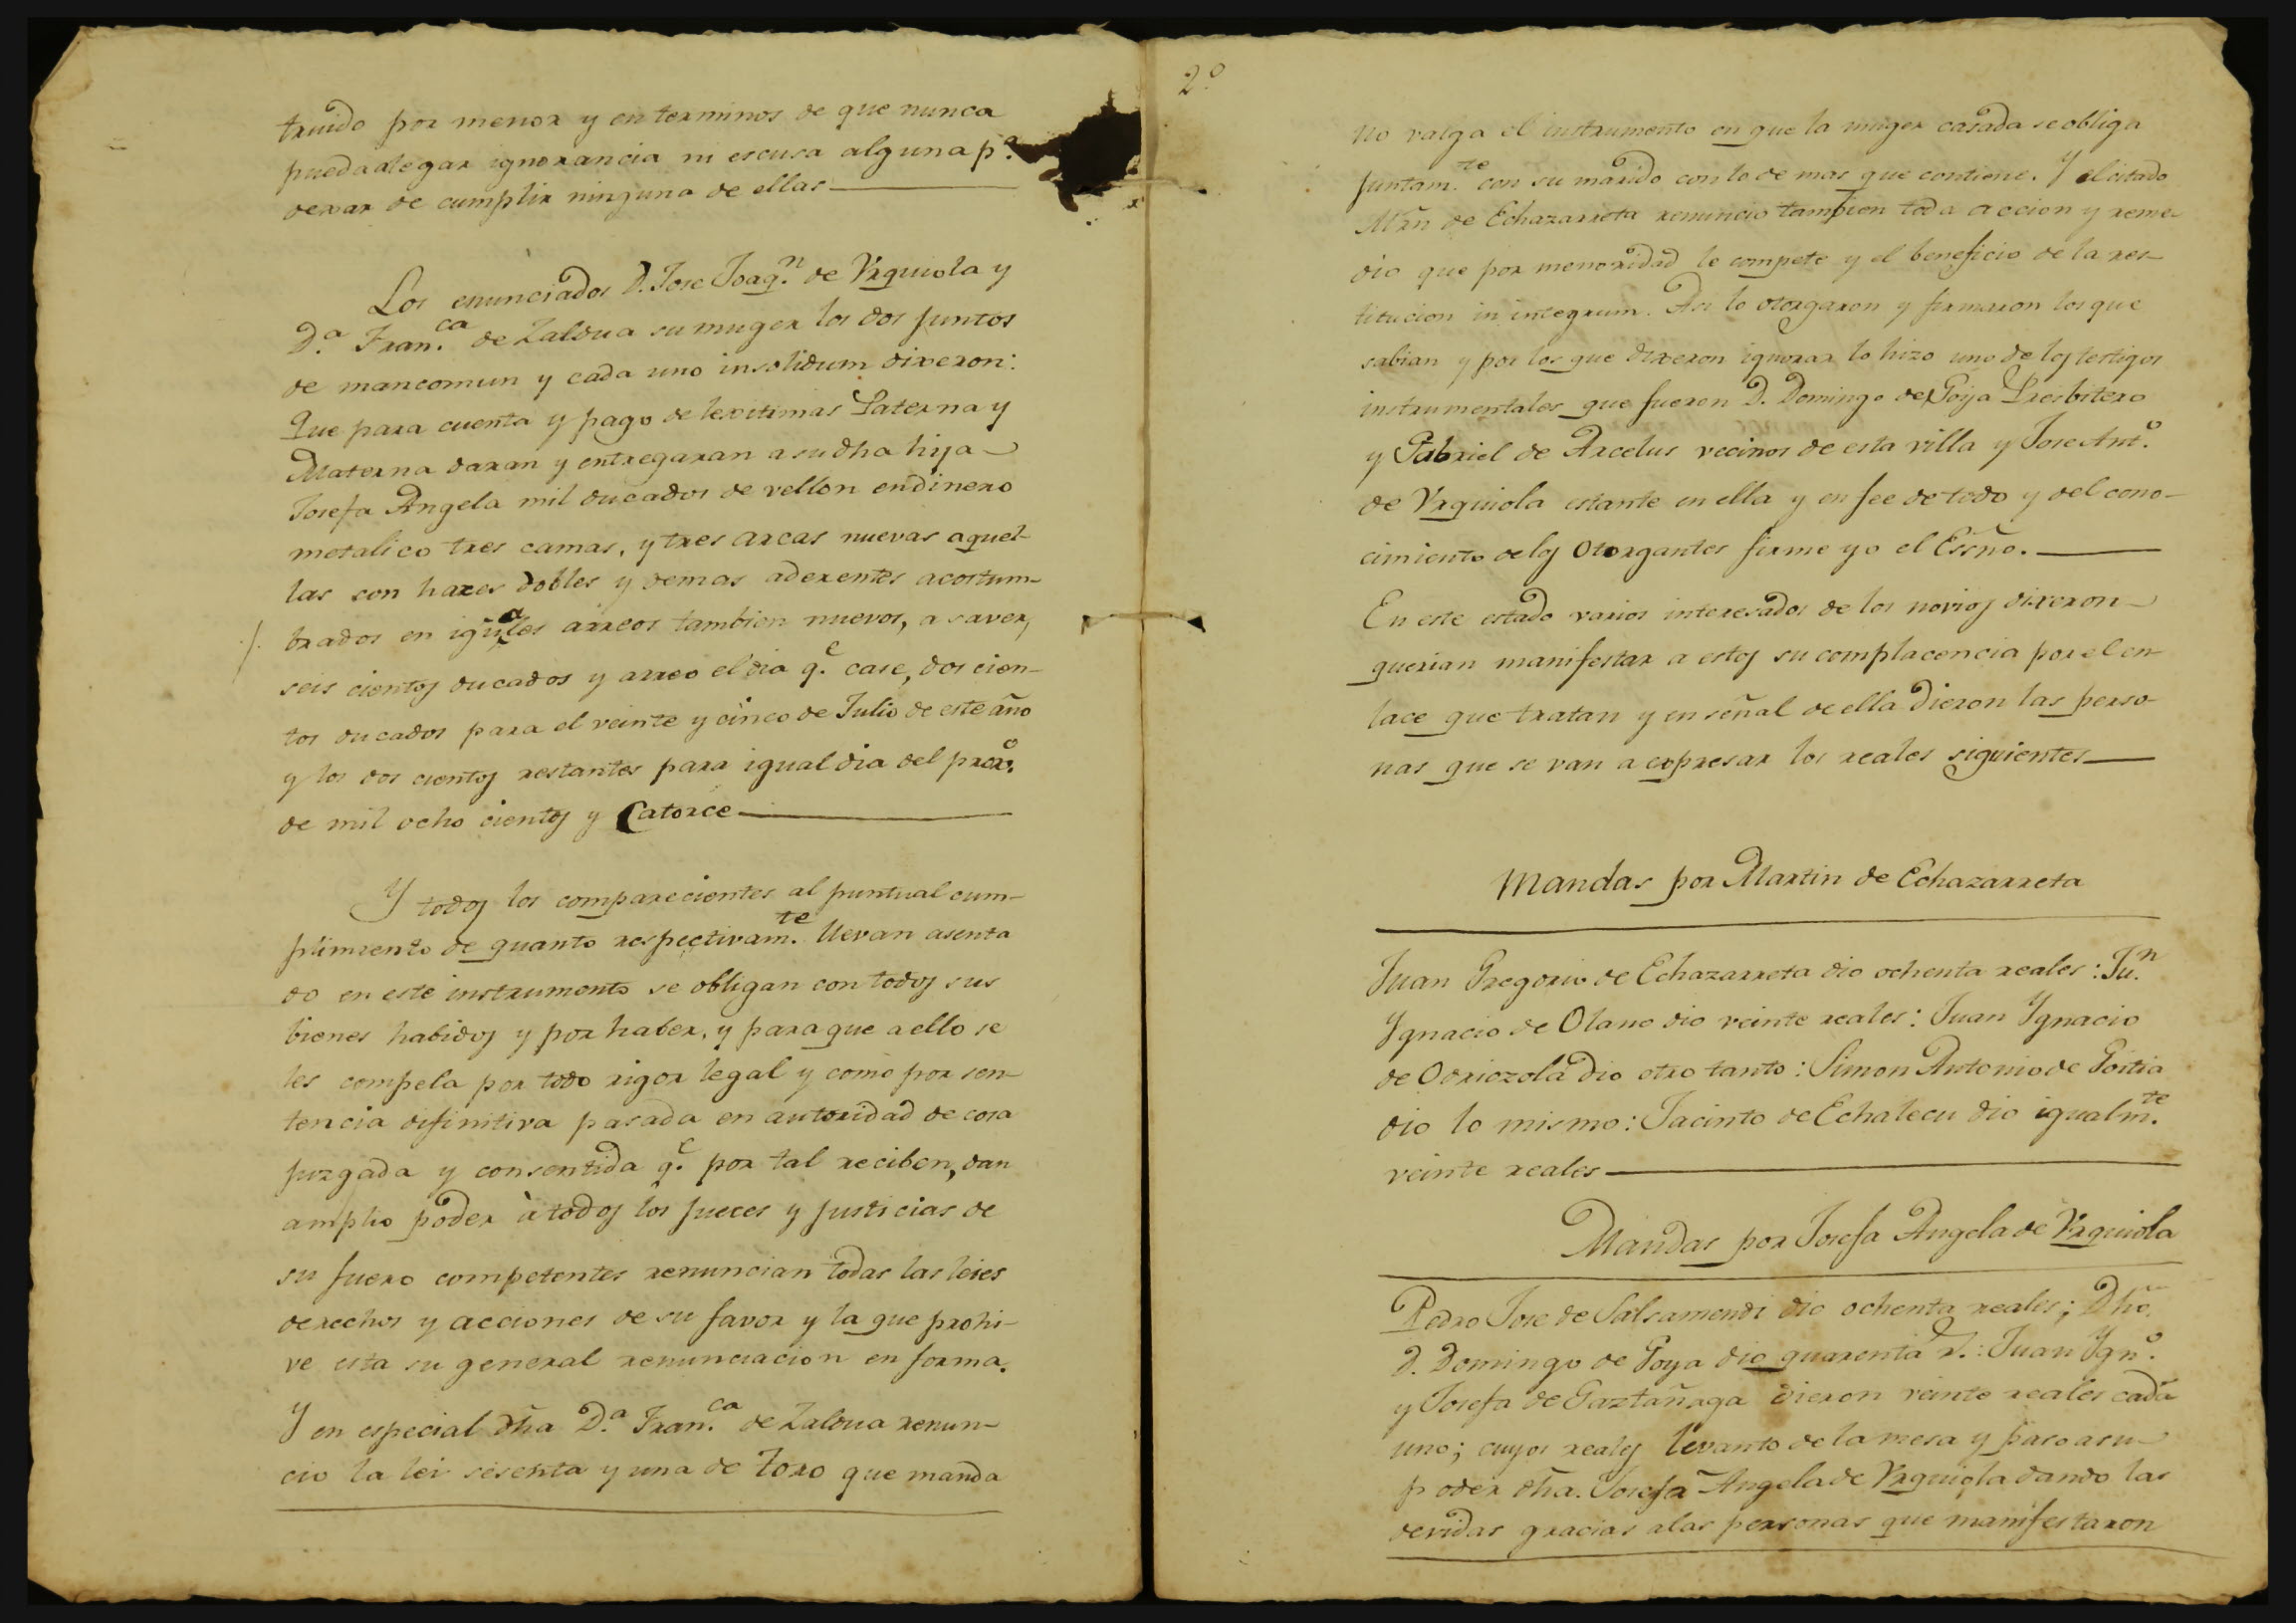 truido por menor y en terminos de que nunca
pueda alegar ignorancia ni escusa alguna p.ª
dexar de cumplir ninguna de ellas
Los enunciados D. Jose Joaq.n de Vrquiola y
D.ª Fran.ca de Zaldua su muger los dos juntos
de mancomun y cada uno insolidum dixeron:
Que para cuenta y pago de lexitimas Paterna y
Materna daran y entregaran a su dha hija
Josefa Angela mil ducados de vellon en dinero
metalico tres camas, y tres arcas nuevas aquel-
las con hazes dobles y demas aderentes acostum-
brados en iguales arreos tambien nuevos, a saver,
seis cientos ducados y arreo el dia q.e case, dos cien-
tos ducados para el veinte y cinco de Julio de este año
y los dos cientos restantes para igual dia del prox.o
de mil ocho cientos y Catorce
Y todos los comparecientes al puntual cum-
plimiento de quanto respectivam.te llevan asenta
do en este instrumento se obligan con todos sus
bienes habidos y por haber, y para que a ello se
les compela por todo rigor legal y como por sen-
tencia difinitiva pasada en autoridad de cosa
juzgada y consentida q.e por tal reciben, dan
amplio poder à todos los jueces y justicias de
su fuero competentes renuncian todas las leies
derechos y acciones de su favor y la que prohi-
ve esta su general renunciacion en forma.
Y en especial dha D.ª Fran.ca de Zaldua renun-
cio la lei sesenta y una de Toro que manda
2.º
no valga el instrumento en que la muger casada se obliga
juntam.te con su marido con lo de mas que contiene. Y el citado
Mrñ de Echazarreta renuncio tambien toda accion y reme-
dio que por menoridad le compete y el beneficio de la res-
titucion in integrum. Asi lo otorgaron y firmaron los que
sabian y por los que dixeron ignorar lo hizo uno de los testigos
instrumentales que fueron D. Domingo de Goya Presbitero
y Gabriel de Arcelus vecinos de esta villa y Jose Ant.o
de Vrquiola estante en ella y en fee de todo y del cono-
cimiento de los Otorgantes firme yo el Esño.
En este estado varios interesados de los novios dixeron
querian manifestar a estos su complacencia por el en-
lace que tratan y en señal de ella dieron las perso-
nas que se van a expresar los reales siguientes
Mandas por Martin de Echazarreta
Juan Gregorio de Echazarreta dio ochenta reales: Ju.n
Ygnacio de Olano dio veinte reales: Juan Ygnacio
de Odriozola dio otro tanto: Simon Antonio de Gostia
dio lo mismo: Jacinto de Echalecu dio igualm.te
veinte reales
Mandas por Josefa Angela de Vrquiola
Pedro Jose de Salsamendi dio ochenta reales; Dho.
D. Domingo de Goya dio quarenta r.s: Juan Ygn.o
y Josefa de Gaztañaga dieron veinte reales cada
uno; cuyos reales levanto de la mesa y paso a su
poder dha. Josefa Angela de Vrquiola dando las
devidas gracias alas personas que manifestaron